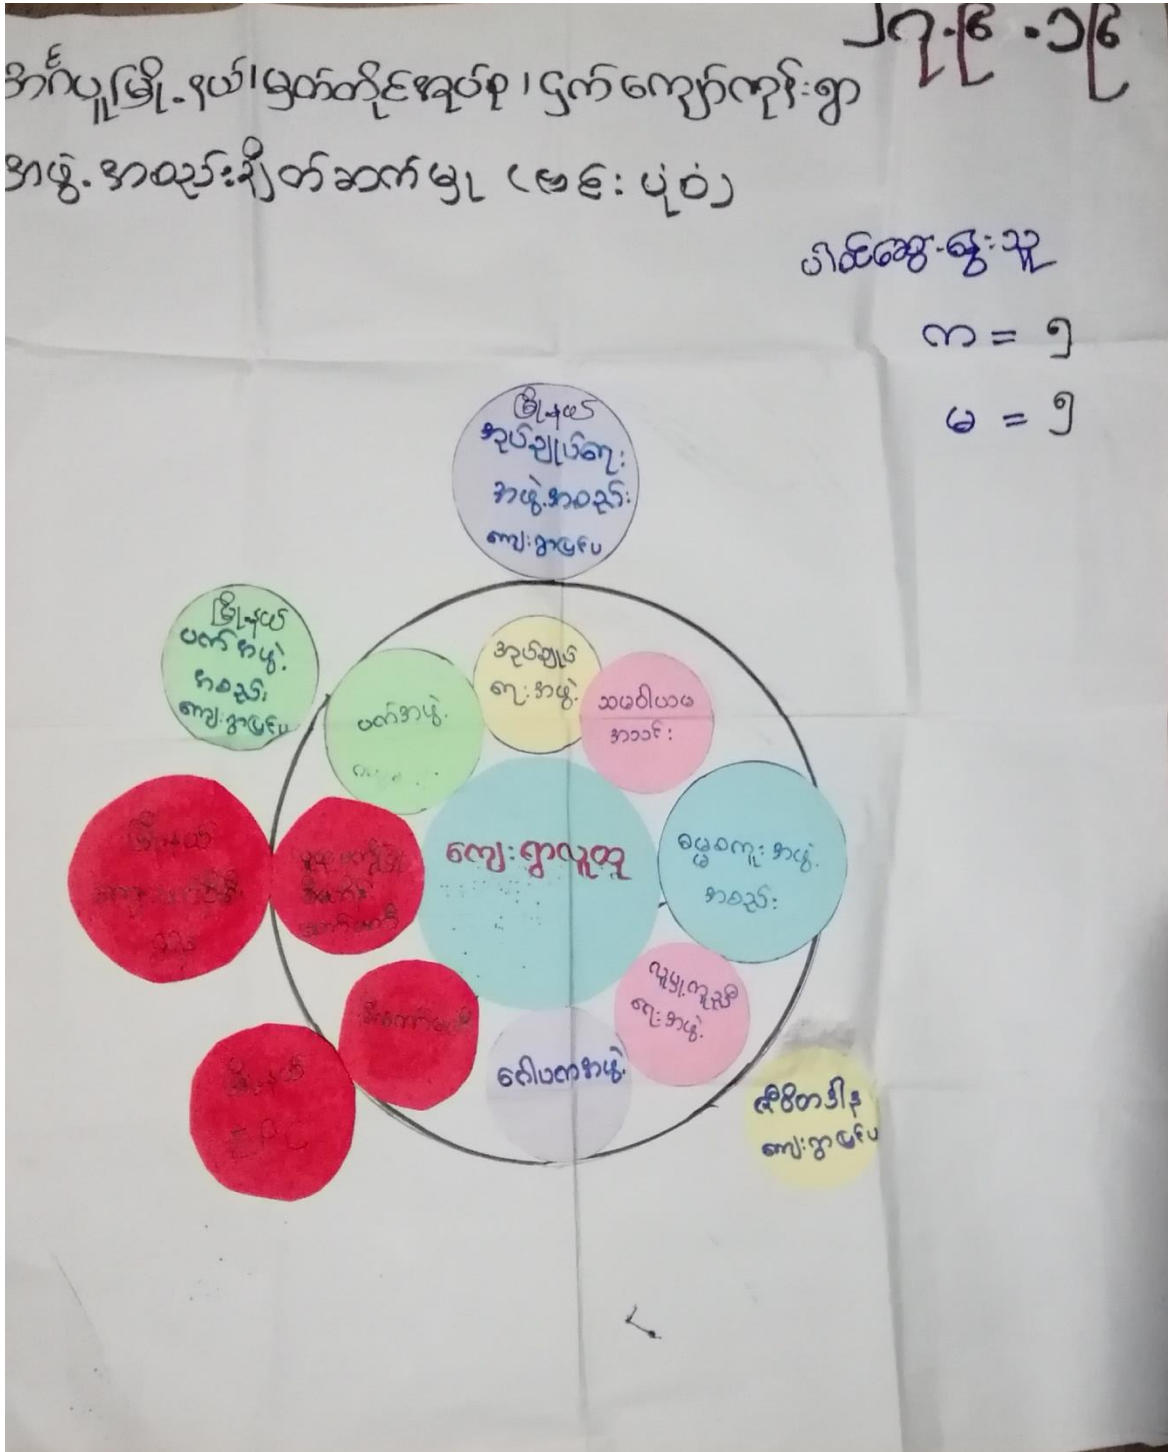 ၂၇.၆.၁၆
အင်္ဂပူမြို့နယ်၊မှတ်တိုင်အုပ်စု၊ငှက်ကျော်ကုန်းရွာ
အဖွဲ့အစည်းချိတ်ဆက်မှု (ဗန်းပုံဝံ)
ပါဝင်ဆွေးနွေးသူ
က = ၅
မ = ၅
မြို့နယ်
အုပ်ချုပ်ရေး
အဖွဲ့အစည်း
ကျေးရွာပြင်ပ
မြို့နယ်
ပတ်အဖွဲ့
အစည်း
ကျေးရွာပြင်ပ
ပတ်အဖွဲ့
အုပ်ချုပ်
ရေးအဖွဲ့
သမဝါယမ
အသင်း
မြို့နယ်
ကျေးရွာလူထု
ဓမ္မစကူးအဖွဲ့
အစည်း
လူမှုကူညီ
ရေးအဖွဲ့
ဂေါပကအဖွဲ့
မြို့နယ်
EPC
ဇီဝိတဒါန
ကျေးရွာပြင်ပ